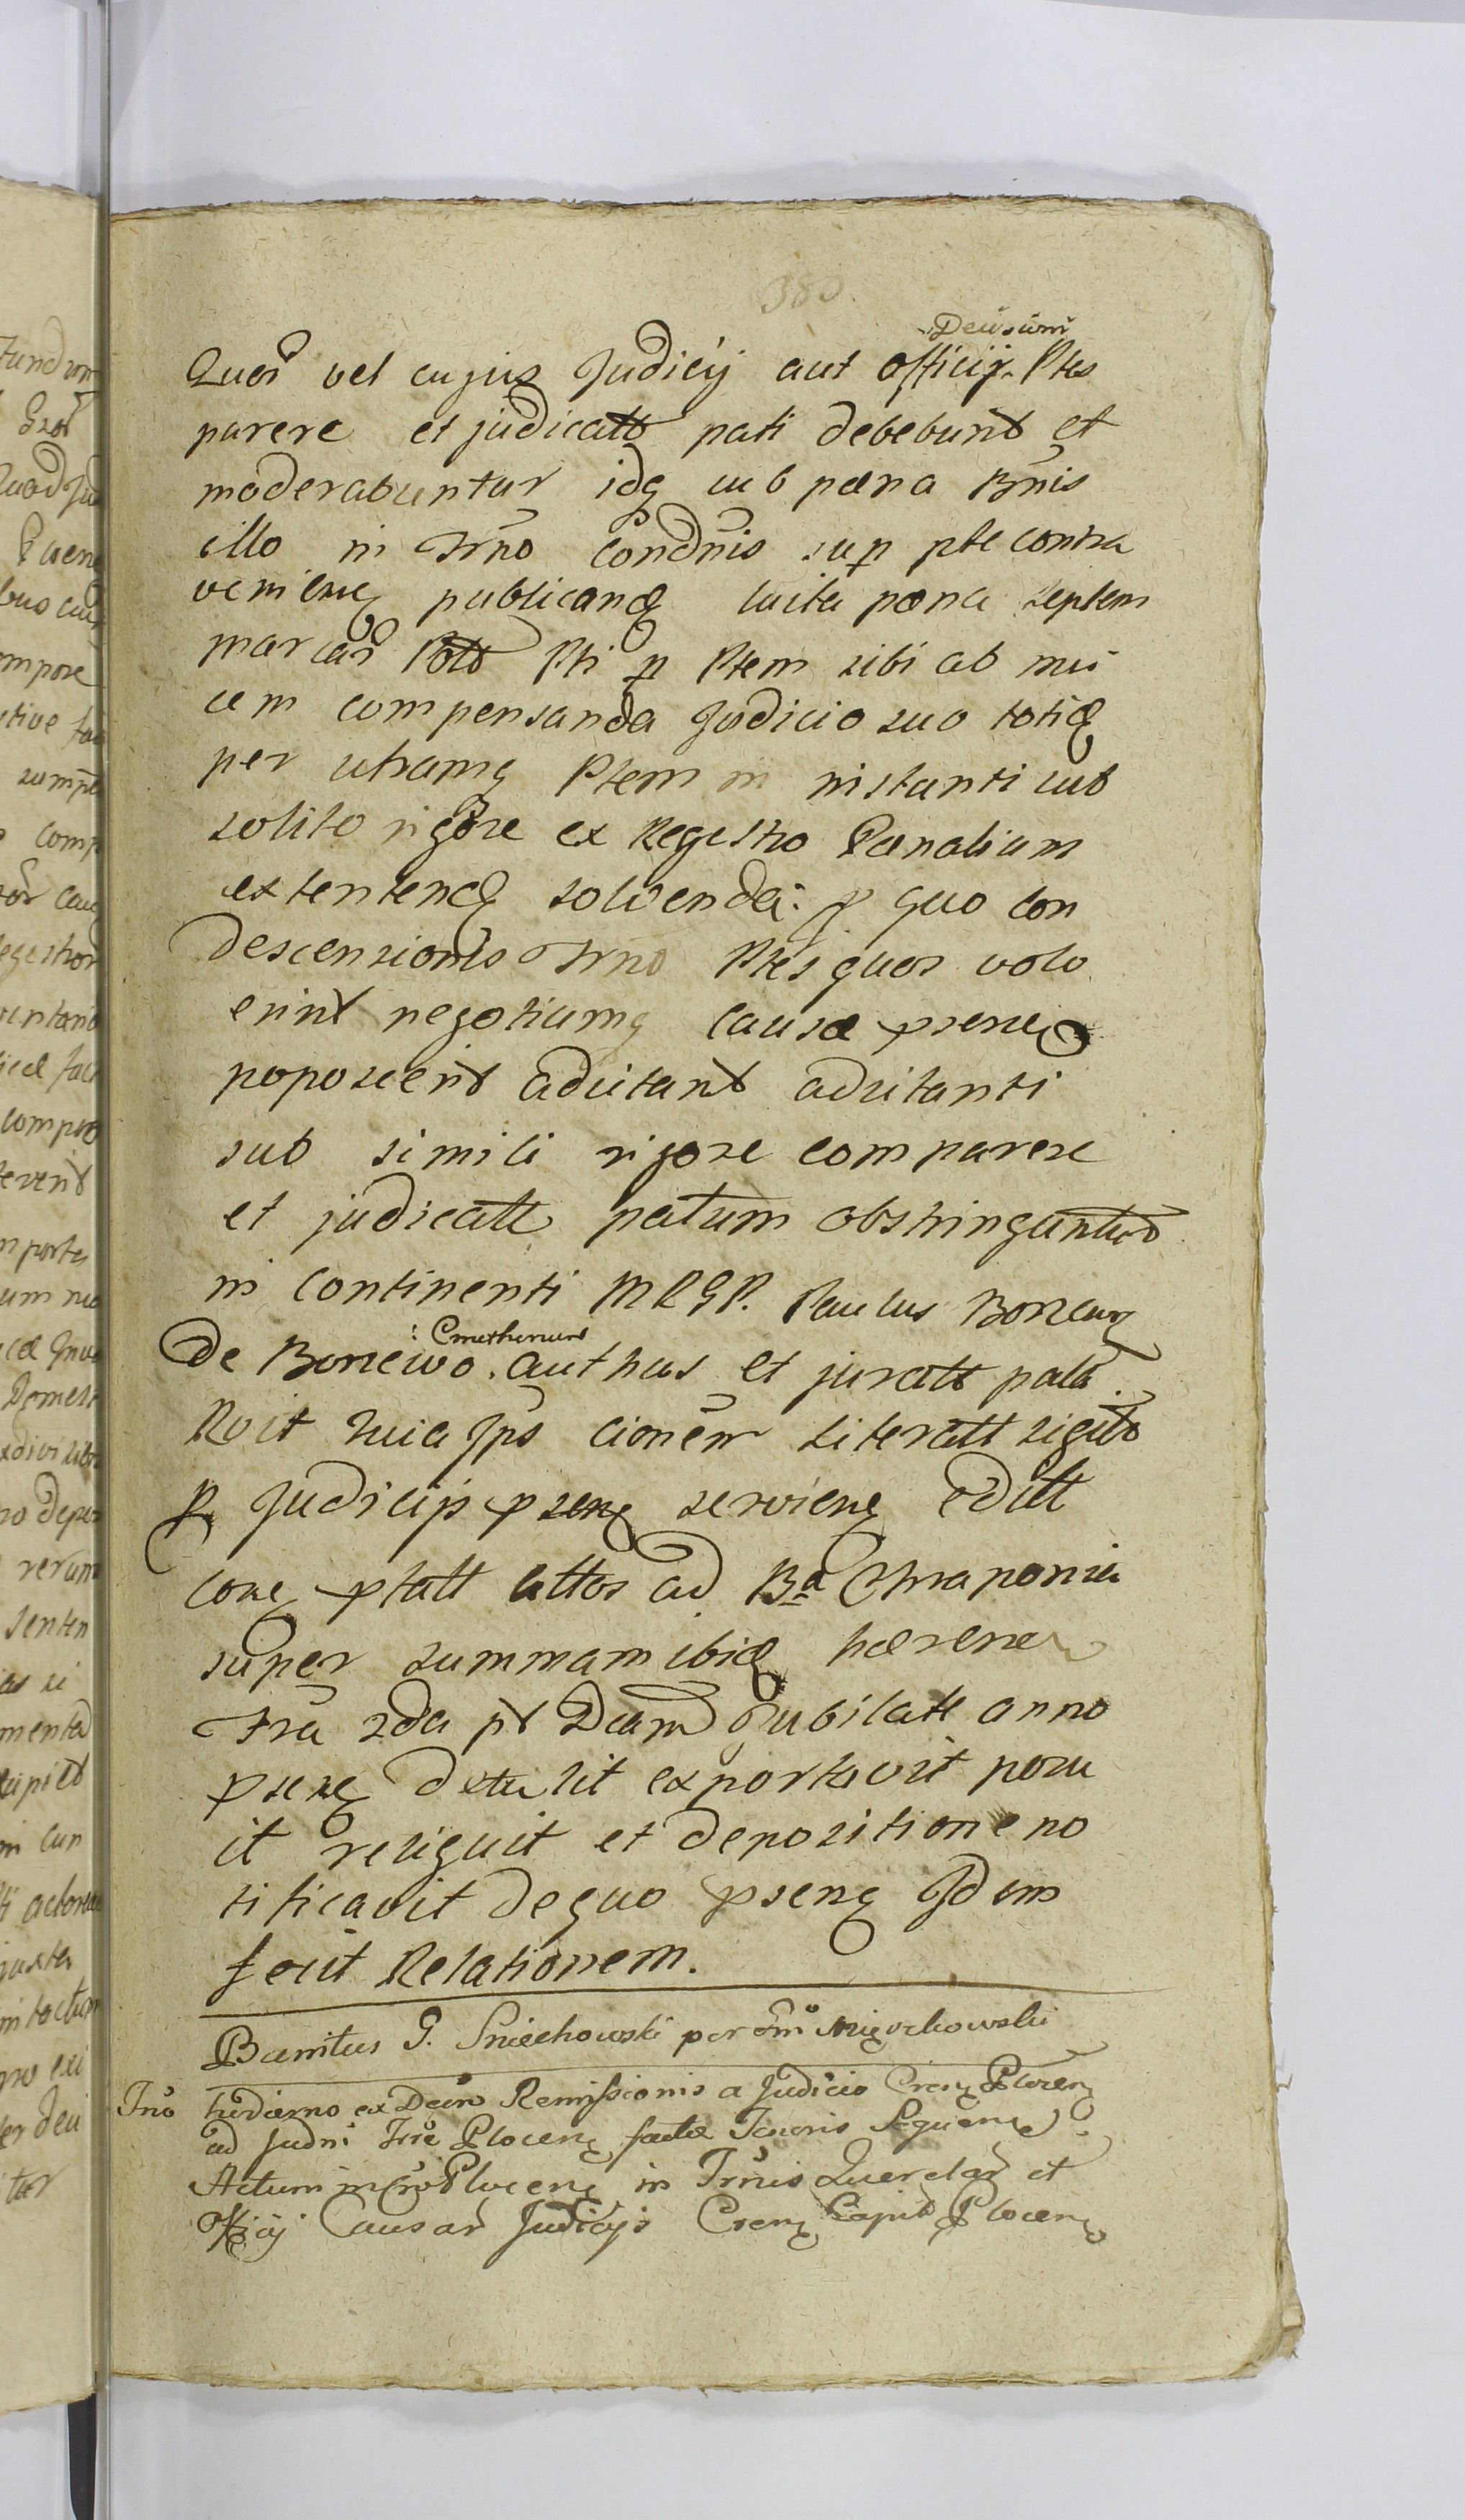 380.
Decisioni
Quor vel cujus Judicij aut officij. Ptes
parere et judicatt pati debebunt et
moderabuntur idq sub pœna Bnis
illo in Trno Condnis sup pte contra
venienq publicanq luita pœna septem
marcar Polo Pti p Ptem sibi ab invi
cem compensanda Judicio suo totiq
per utramq Ptem in instanti sub
solito rigore ex Regestro Pœnalium
extentenq solvenda: p quo con
descensionis Trno Ptes quos volu
erint negotiumq causæ psenq
poposcerit adcitant adcitanti
sub simili rigore comparere
et judicatt patum obstringuntur
in continenti MRGP. Paulus Boncza
: Cmethonum
de Boncewo. authus et juratt pala
Roit suia Jps cionem literatt sigill
p Judicijs psenq servienq editt
conq ptatt attos ad Ba Chraponia
super summam ibiq hæren
Fria 2da pt Dcam Jubilate anno
psenq detulit exportavit posu
it reliquit et depositione no
tificavit de quo psenq Idem
fecit Relationem.
Banitus G. Sniechowski per Gm Mięczkowski
Tno hodierno ex Decro Remissionis a Judicio Crenq Plocenq
ad Judm Trre Plocenq factæ Tenoris Sequenq.
Actum in Cro Plocenq in Trnis Querelar et
Officij Causar Judicijs Crenq Capit Plocenq